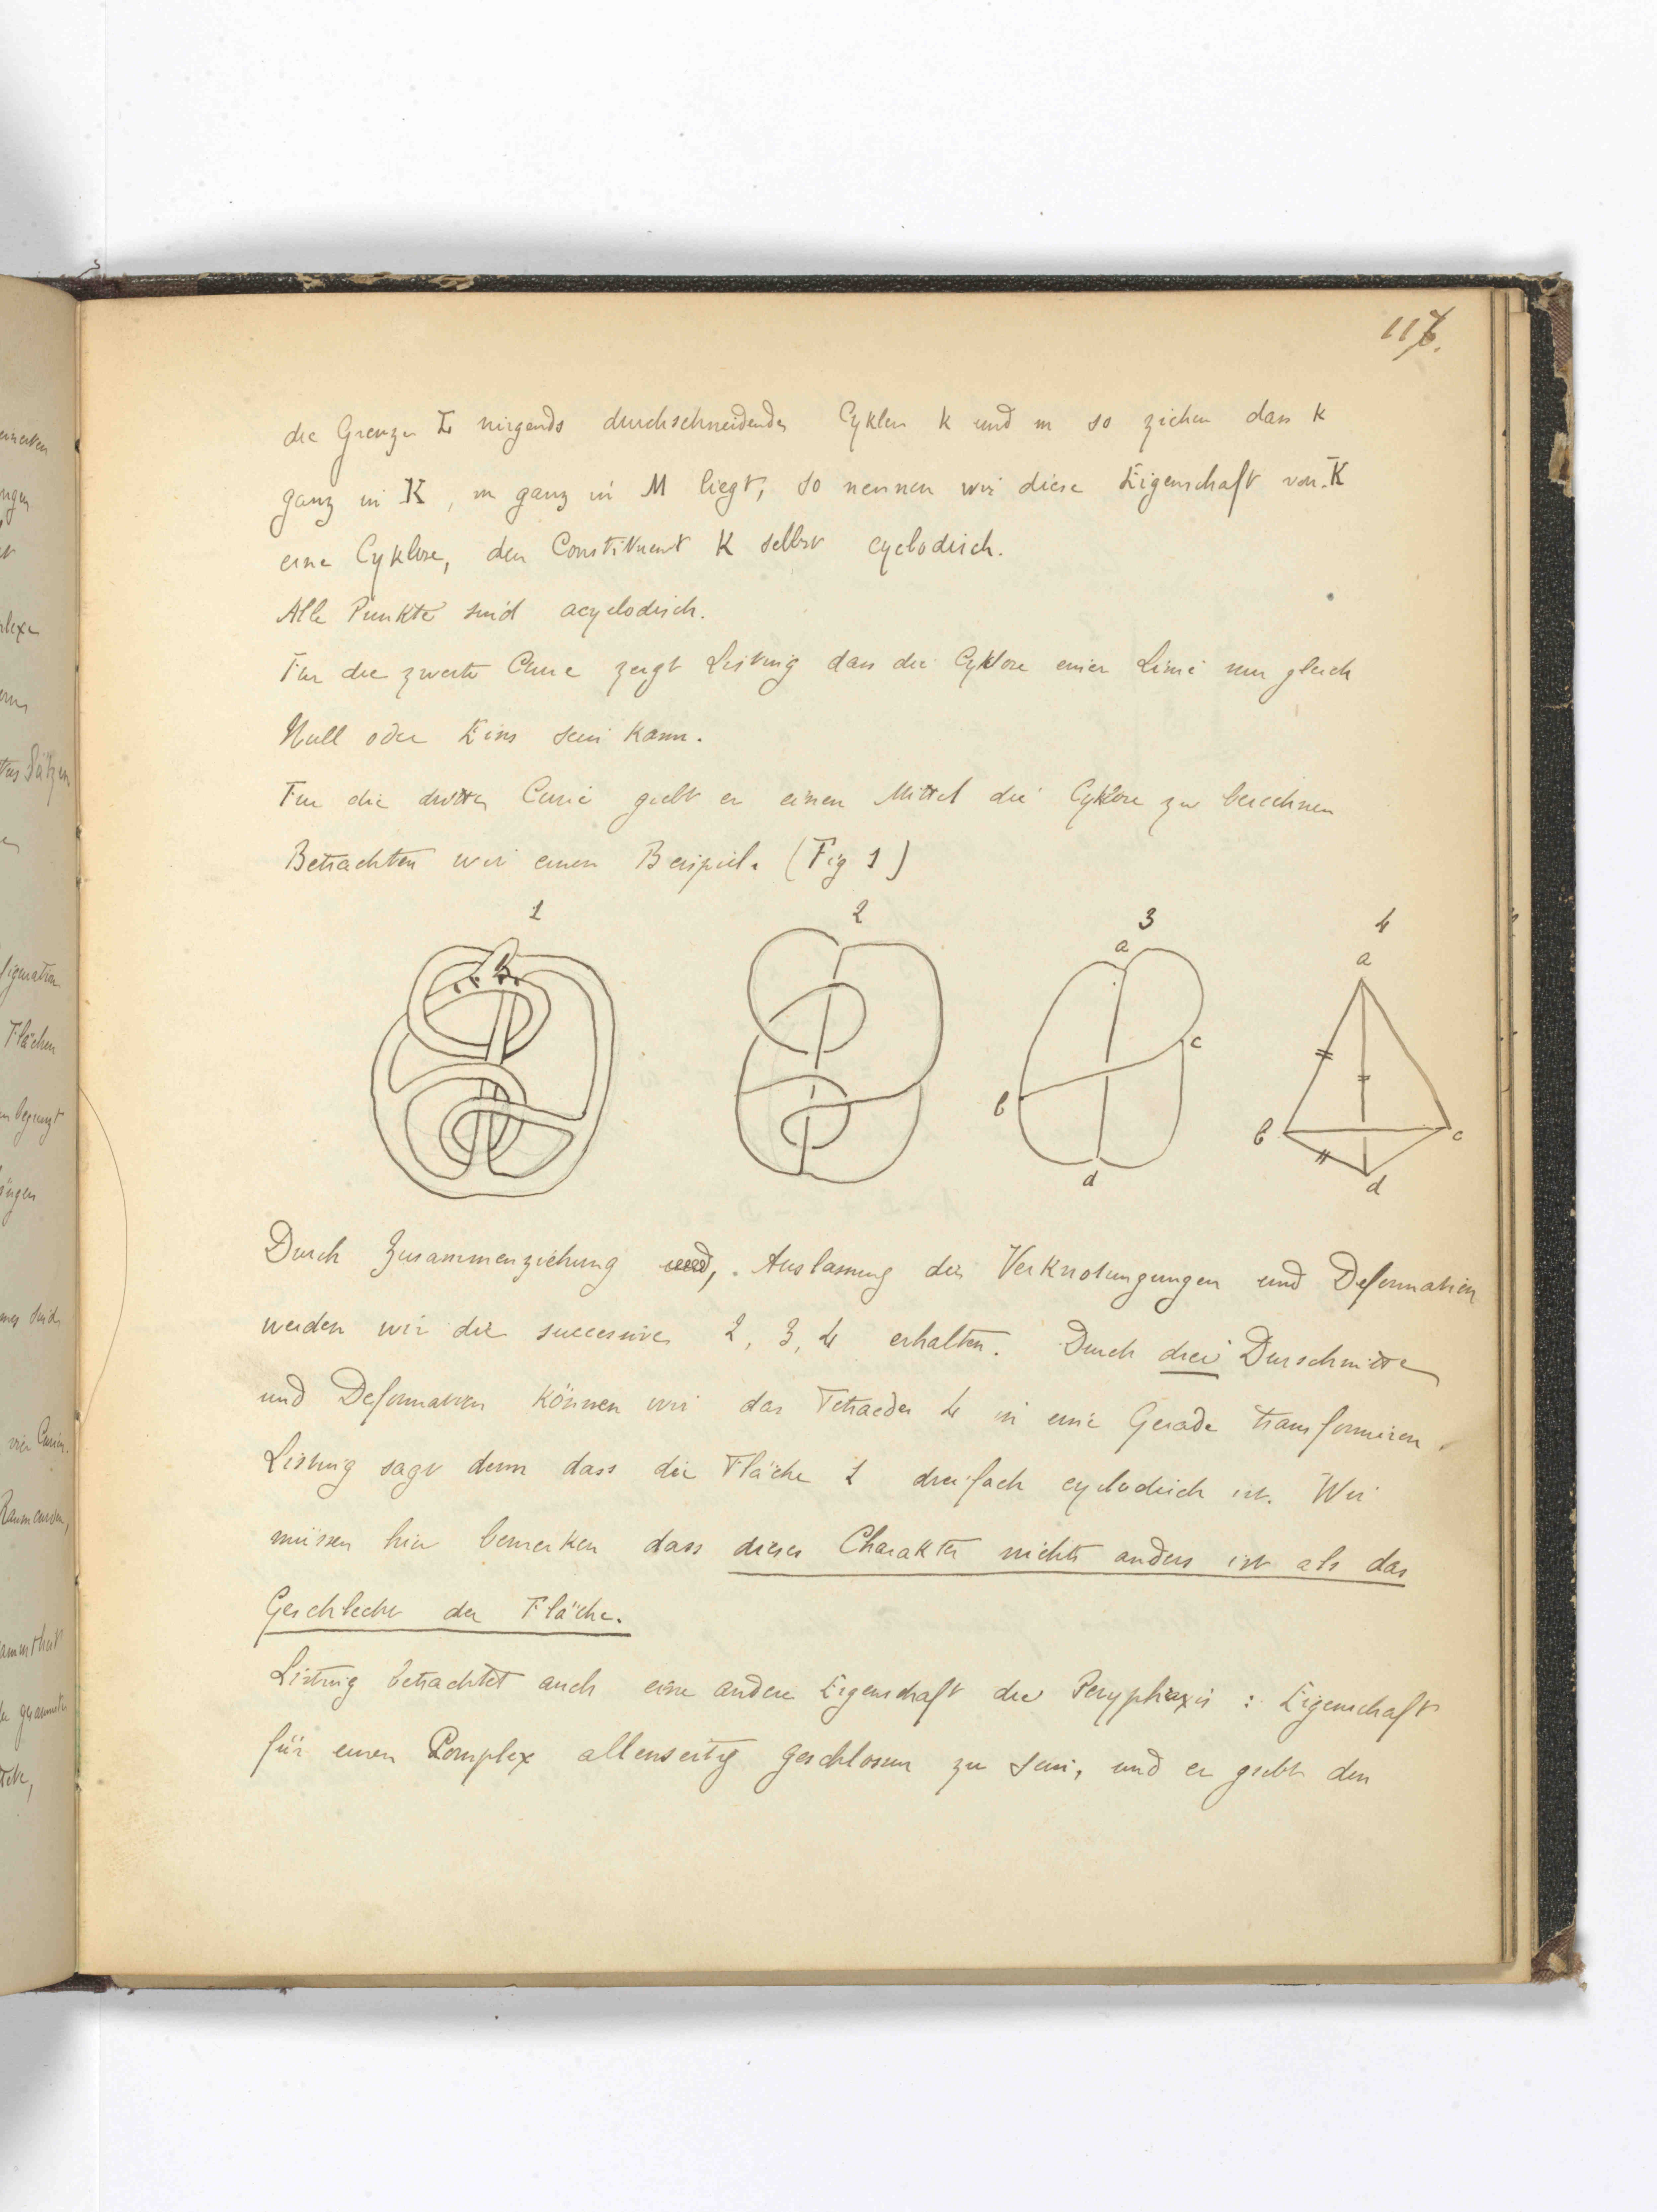 117.
die Grenzen L nirgends durchschneidende, Cyklen k und m so ziehen dass k
ganz in K, m ganz in M liegt, so nennen wir diese Eigenschaft von K
eine Cyklose, den Constituent K selbst cyclodisch.
Alle Punkte sind acyclodisch.
Für die zweite Curie zeigt Listing dass die Cyklose einer Linie nur gleich
Null oder Eins sein kann.
Für die dritte Curie giebt er einen Mittel die Cyklose zu berechnen
Betrachten wir einen Beispiel. (Fig 1)
1 2 3 4
a a
c
b b c
d d
Durch Zusammenziehung, Auslassung der Verknotungungen und Deformation
werden wir die successive 2, 3, 4 erhalten. Durch drei Durschnitte
und Deformation können wir das Tetraeder 4 in eine Gerade transformiren.
Listing sagt denn dass die Fläche 1 dreifach cyclodisch ist. Wir
müssen hier bemerken dass dieser Charakter nichts anders ist als das
Geschlecht der Fläche.
Listing betrachtet auch eine andere Eigenschaft die Peryphraxis : Eigenschaft
für einen Complex allenseitig geschlossen zu sein, und er giebt den